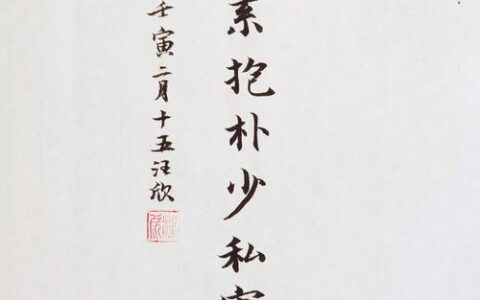 素抱朴少私寡
壬寅二月十五汪欣